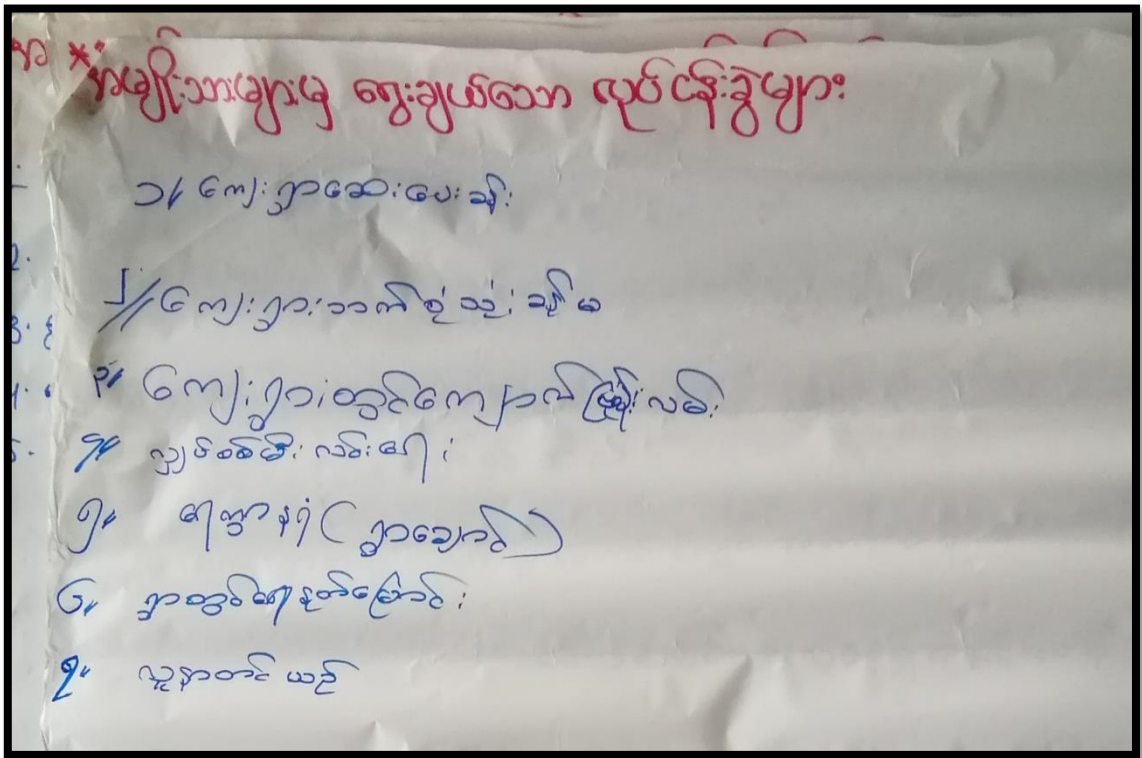 * အမျိုးသားများမှ ရွေးချယ်သော လုပ်ငန်းခွဲများ
၁။ ကျေးရွာဆေးပေးခန်း
၂။ ကျေးရွာ
၃။ ကျေးရွာတွင်း ကျောက်ဖြန့်းလမ်း
၄။ လျှပ်စစ်မီးလင်းရေး
၅။ ရေ နရံ (ရွာချောင်း)
၆။ ရွာတွင်းရေနုတ်မြောင်း
၇။ လူနာတင်ယဉ်